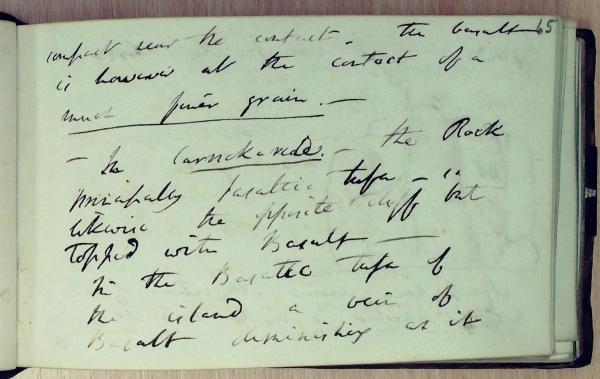 compact near the contact - the basalt 65
is however at the contact of a
much finer grain. —
- In Carrickarede. - the Rock
principally basaltic tufa - is
likewise the opposite cliff but
topped with Basalt —
In the Basaltic tufa of
the island a vein of
Basalt diminishing as it